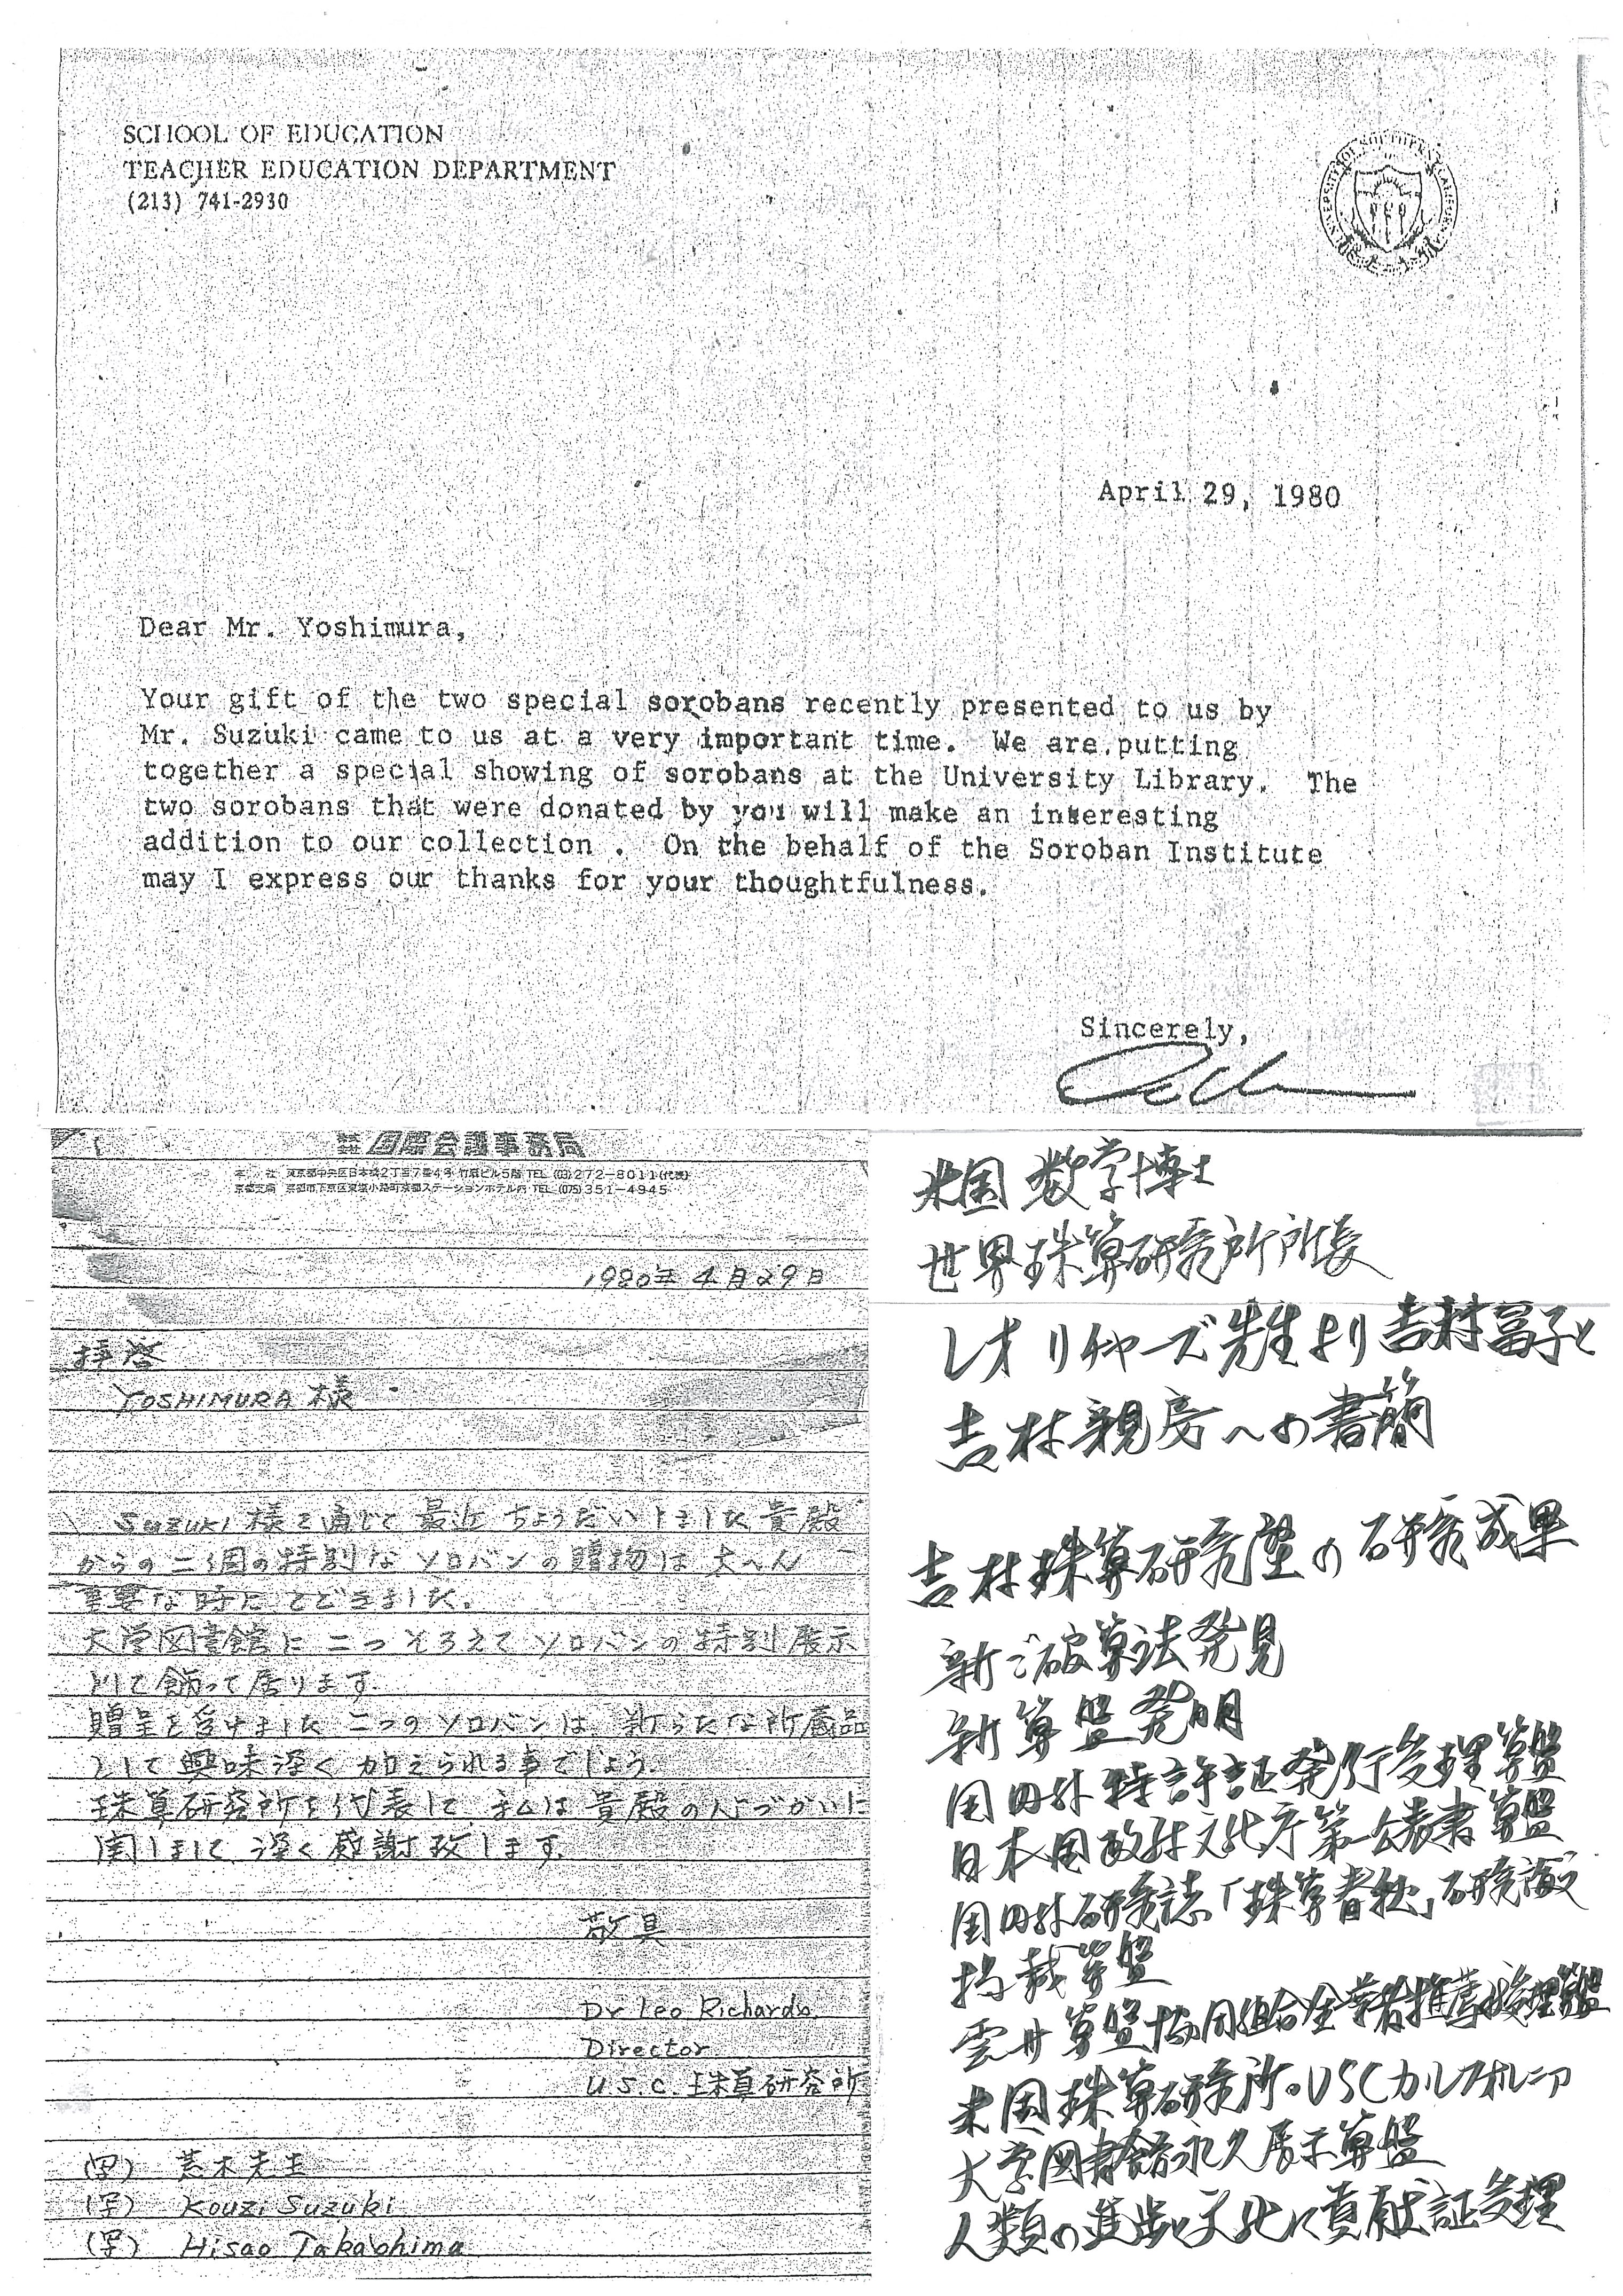 SCHOOL OF EDUCATION
TEACHER EDUCATION DEPARTMENT
(213) 741-2930
April 29, 1980
Dear Mr. Yoshimura,
Your gift of the two special sorobans recently presented to us by
Mr. Suzuki came to us at a very important time. We are putting
together a special showing of sorobans at the University Library. The
two sorobans that were donated by you will make an interesting
addition to our collection . On the behalf of the Soroban Institute
may I express our thanks for your thoughtfulness.
Sincerely,
国際会議事務局
本 社 東京都中央区日本橋2丁目7番4号 竹原ビル5階 TEL (03)272-8011(代表)
京都支局 京都市下京区東塩小路町京都ステーションホテル内 TEL (075)351-4945
1980年4月29日
拝啓
YOSHIMURA 様
Suzuki 様を通じて最近ちょうだいしました貴殿
からの二個の特別なソロバンの贈物は大へん
重要な時にとどきました。
大学図書館に二つそろえてソロバンの特別展示
として飾って居ります。
贈呈を受けました二つのソロバンは、新らたな所蔵品
として興味深く加えられる事でしょう。
珠算研究所を代表して、私は貴殿の心づかいに
関しまして深く感謝致します。
敬具
Dr Leo Richards
Director
U.S.C. 珠算研究所
(写) 荒木先生
(写) Kouzi Suzuki
(写) Hisao Takashima
米国 数学博士
世界珠算研究所所長
レオ リチャーズ先生より吉村富子と
吉村親房への書簡
吉村珠算研究室の研究成果
新しご破算法発見
新算盤発明
国内外特許証発行受理算盤
日本国政府文化庁第一公表書算盤
国内外研究誌「珠算春秋」研究論文
掲載算盤
雲州算盤協同組合全業者推薦受理算盤
米国珠算研究所。USCカルフォルニア
大学図書館永久展示算盤
人類の進歩と文化に貢献証受理